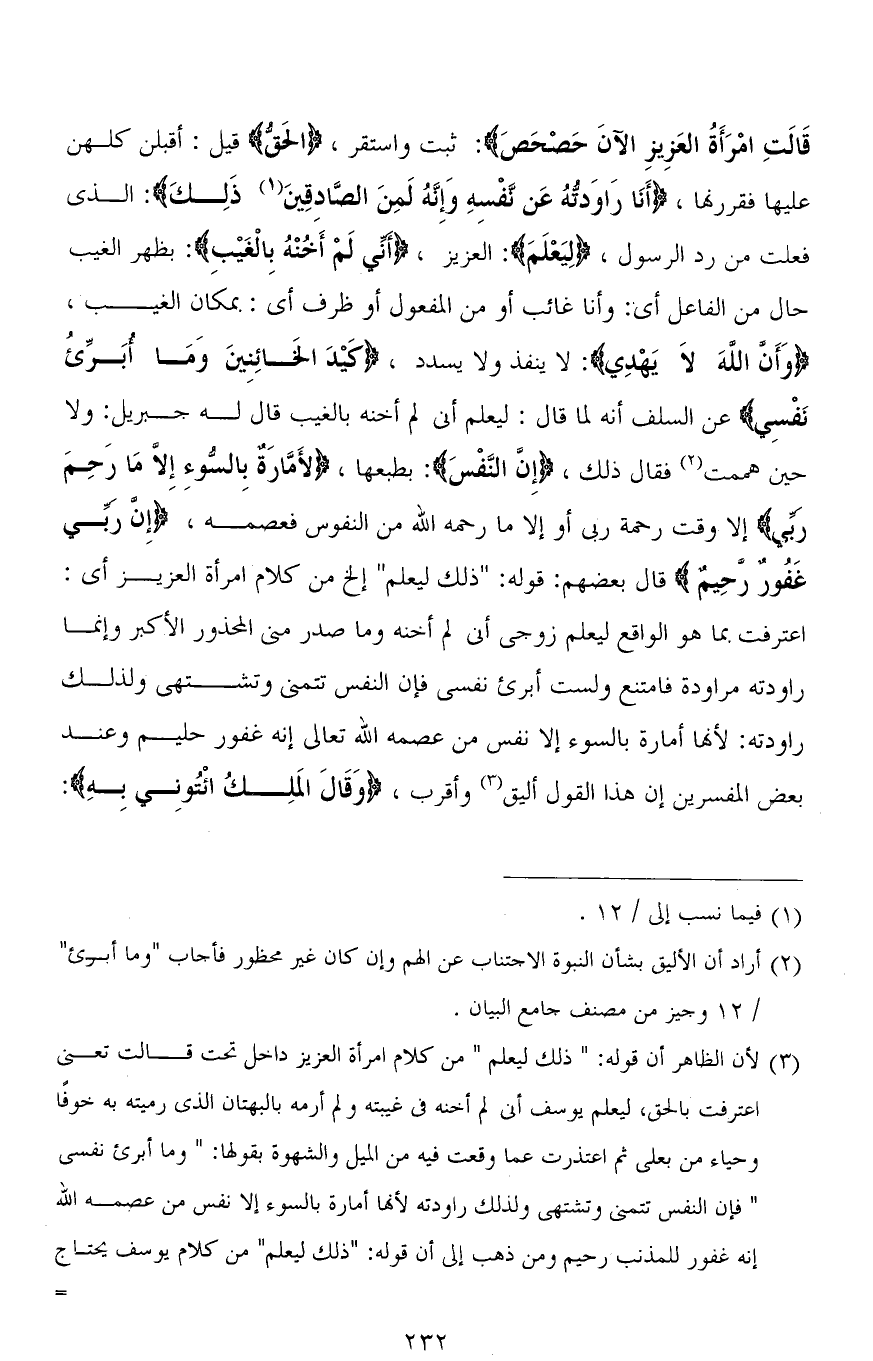 قَالَتِ امْرَأَةُ العَزِيزِ الآنَ حَصْحَصَ﴾: ثبت واستقر ، ﴿الحَقُّ﴾ قيل : أقبلن كلـهن
عليها فقررنها ، ﴿أَنَا رَاوَدتُّهُ عَن نَّفْسِهِ وَإِنَّهُ لَمِنَ الصَّادِقِينَ(١) ذَلِــكَ﴾: الــذى
فعلت من رد الرسول ، ﴿لِيَعْلَمَ﴾: العزيز ، ﴿أَنِّي لَمْ أَخُنْهُ بِالْغَيْبِ﴾: بظهر الغيب
حال من الفاعل أى: وأنا غائب أو من المفعول أو ظرف أى : بمكان الغيـــــب ،
﴿وَأَنَّ اللَّهَ لاَ يَهْدِي﴾: لا ينفذ ولا يسدد ، ﴿كَيْدَ الخَــائِنِينَ وَمَــا أُبَــرِّئُ
نَفْسِي﴾ عن السلف أنه لما قال : ليعلم أنى لم أخنه بالغيب قال لــه جــبريل: ولا
حين هممت(٢) فقال ذلك ، ﴿إِنَّ النَّفْسَ﴾: بطبعها ، ﴿لأَمَّارَةٌ بِالسُّوءِ إِلاَّ مَا رَحِـمَ
رَبِّي﴾ إلا وقت رحمة ربى أو إلا ما رحمه الله من النفوس فعصمـــه ، ﴿إِنَّ رَبِّــي
غَفُورٌ رَّحِيمٌ ﴾ قال بعضهم: قوله: "ذلك ليعلم" إلخ من كلام امرأة العزيــز أى :
اعترفت بما هو الواقع ليعلم زوجى أنى لم أخنه وما صدر منى المحذور الأكبر وإنمــا
راودته مراودة فامتنع ولست أبرئ نفسى فإن النفس تتمنى وتشــــتهى ولذلــك
راودته: لأنها أمارة بالسوء إلا نفس من عصمه الله تعالى إنه غفور حليـــم وعنــد
بعض المفسرين إن هذا القول أليق(٣) وأقرب ، ﴿وَقَالَ المَلِـــكُ ائْتُونِــي بِــهِ﴾:
(١) فيما نسب إلى / ١٢ .
(٢) أراد أن الأليق بشأن النبوة الاجتناب عن الهم وإن كان غير محظور فأجاب "وما أبـرئ"
/ ١٢ وجيز من مصنف جامع البيان .
(٣) لأن الظاهر أن قوله: " ذلك ليعلم " من كلام امرأة العزيز داخل تحت قـــالت تعــنى
اعترفت بالحق، ليعلم يوسف أنى لم أخنه فى غيبته ولم أرمه بالبهتان الذى رميته به خوفًا
وحياء من بعلى ثم اعتذرت عما وقعت فيه من الميل والشهوة بقولها: " وما أبرئ نفسى
" فإن النفس تتمنى وتشتهى ولذلك راودته لأنها أمارة بالسوء إلا نفس من عصمــه الله
إنه غفور للمذنب رحيم ومن ذهب إلى أن قوله: "ذلك ليعلم" من كلام يوسف يحتـاج
=
٢٣٢